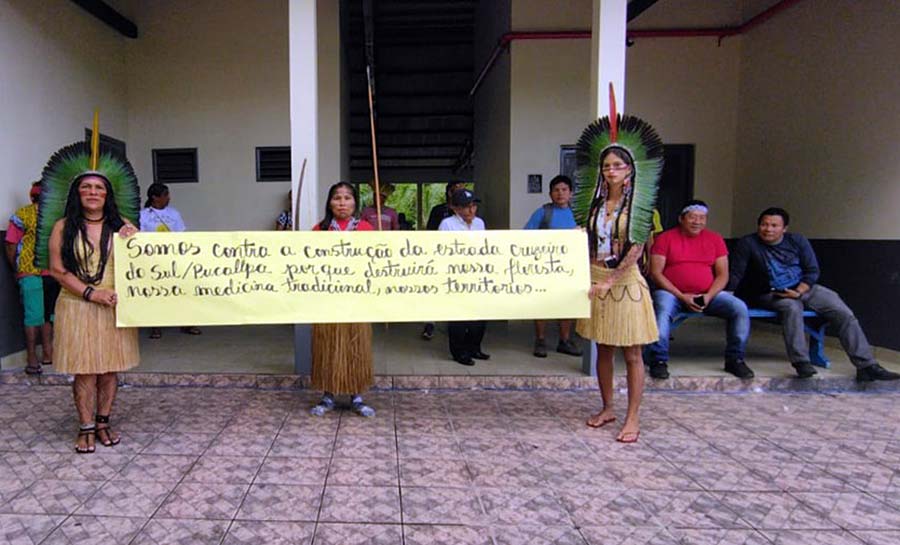 Somos contra a construção da estrada Cruzeiro
do Sul/Pucallpa porque destruirá nossa floresta,
nossa medicina tradicional, nossos territórios...